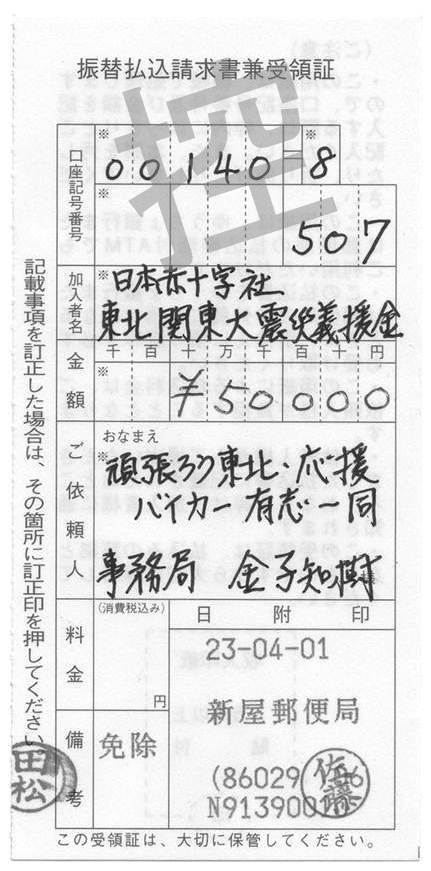 振替払込請求書兼受領証
控
口座記号番号
※ ※
00140-8
※
507
加入者名
※
日本赤十字社
東北関東大震災義援金
金額
千百十万千百十円
※
¥50000
ご依頼人
おなまえ
※
頑張ろう東北・応援
バイカー有志一同
事務局 金子知樹
料金
(消費税込み)
円
日附印
23-04-01
新屋郵便局
(86029 6
N913900
佐藤
備考
免除
記載事項を訂正した場合は、その箇所に訂正印を押してください。
田松
この受領証は、大切に保管してください。